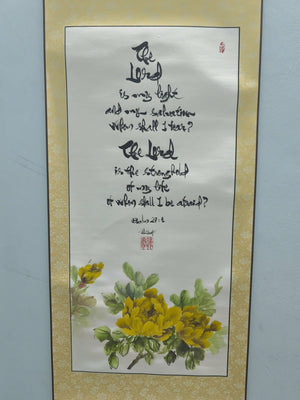 The
Lord
is my light
and my salvation
whom shall I fear?
The Lord
is the stronghold
of my life
of whom shall I be afraid?